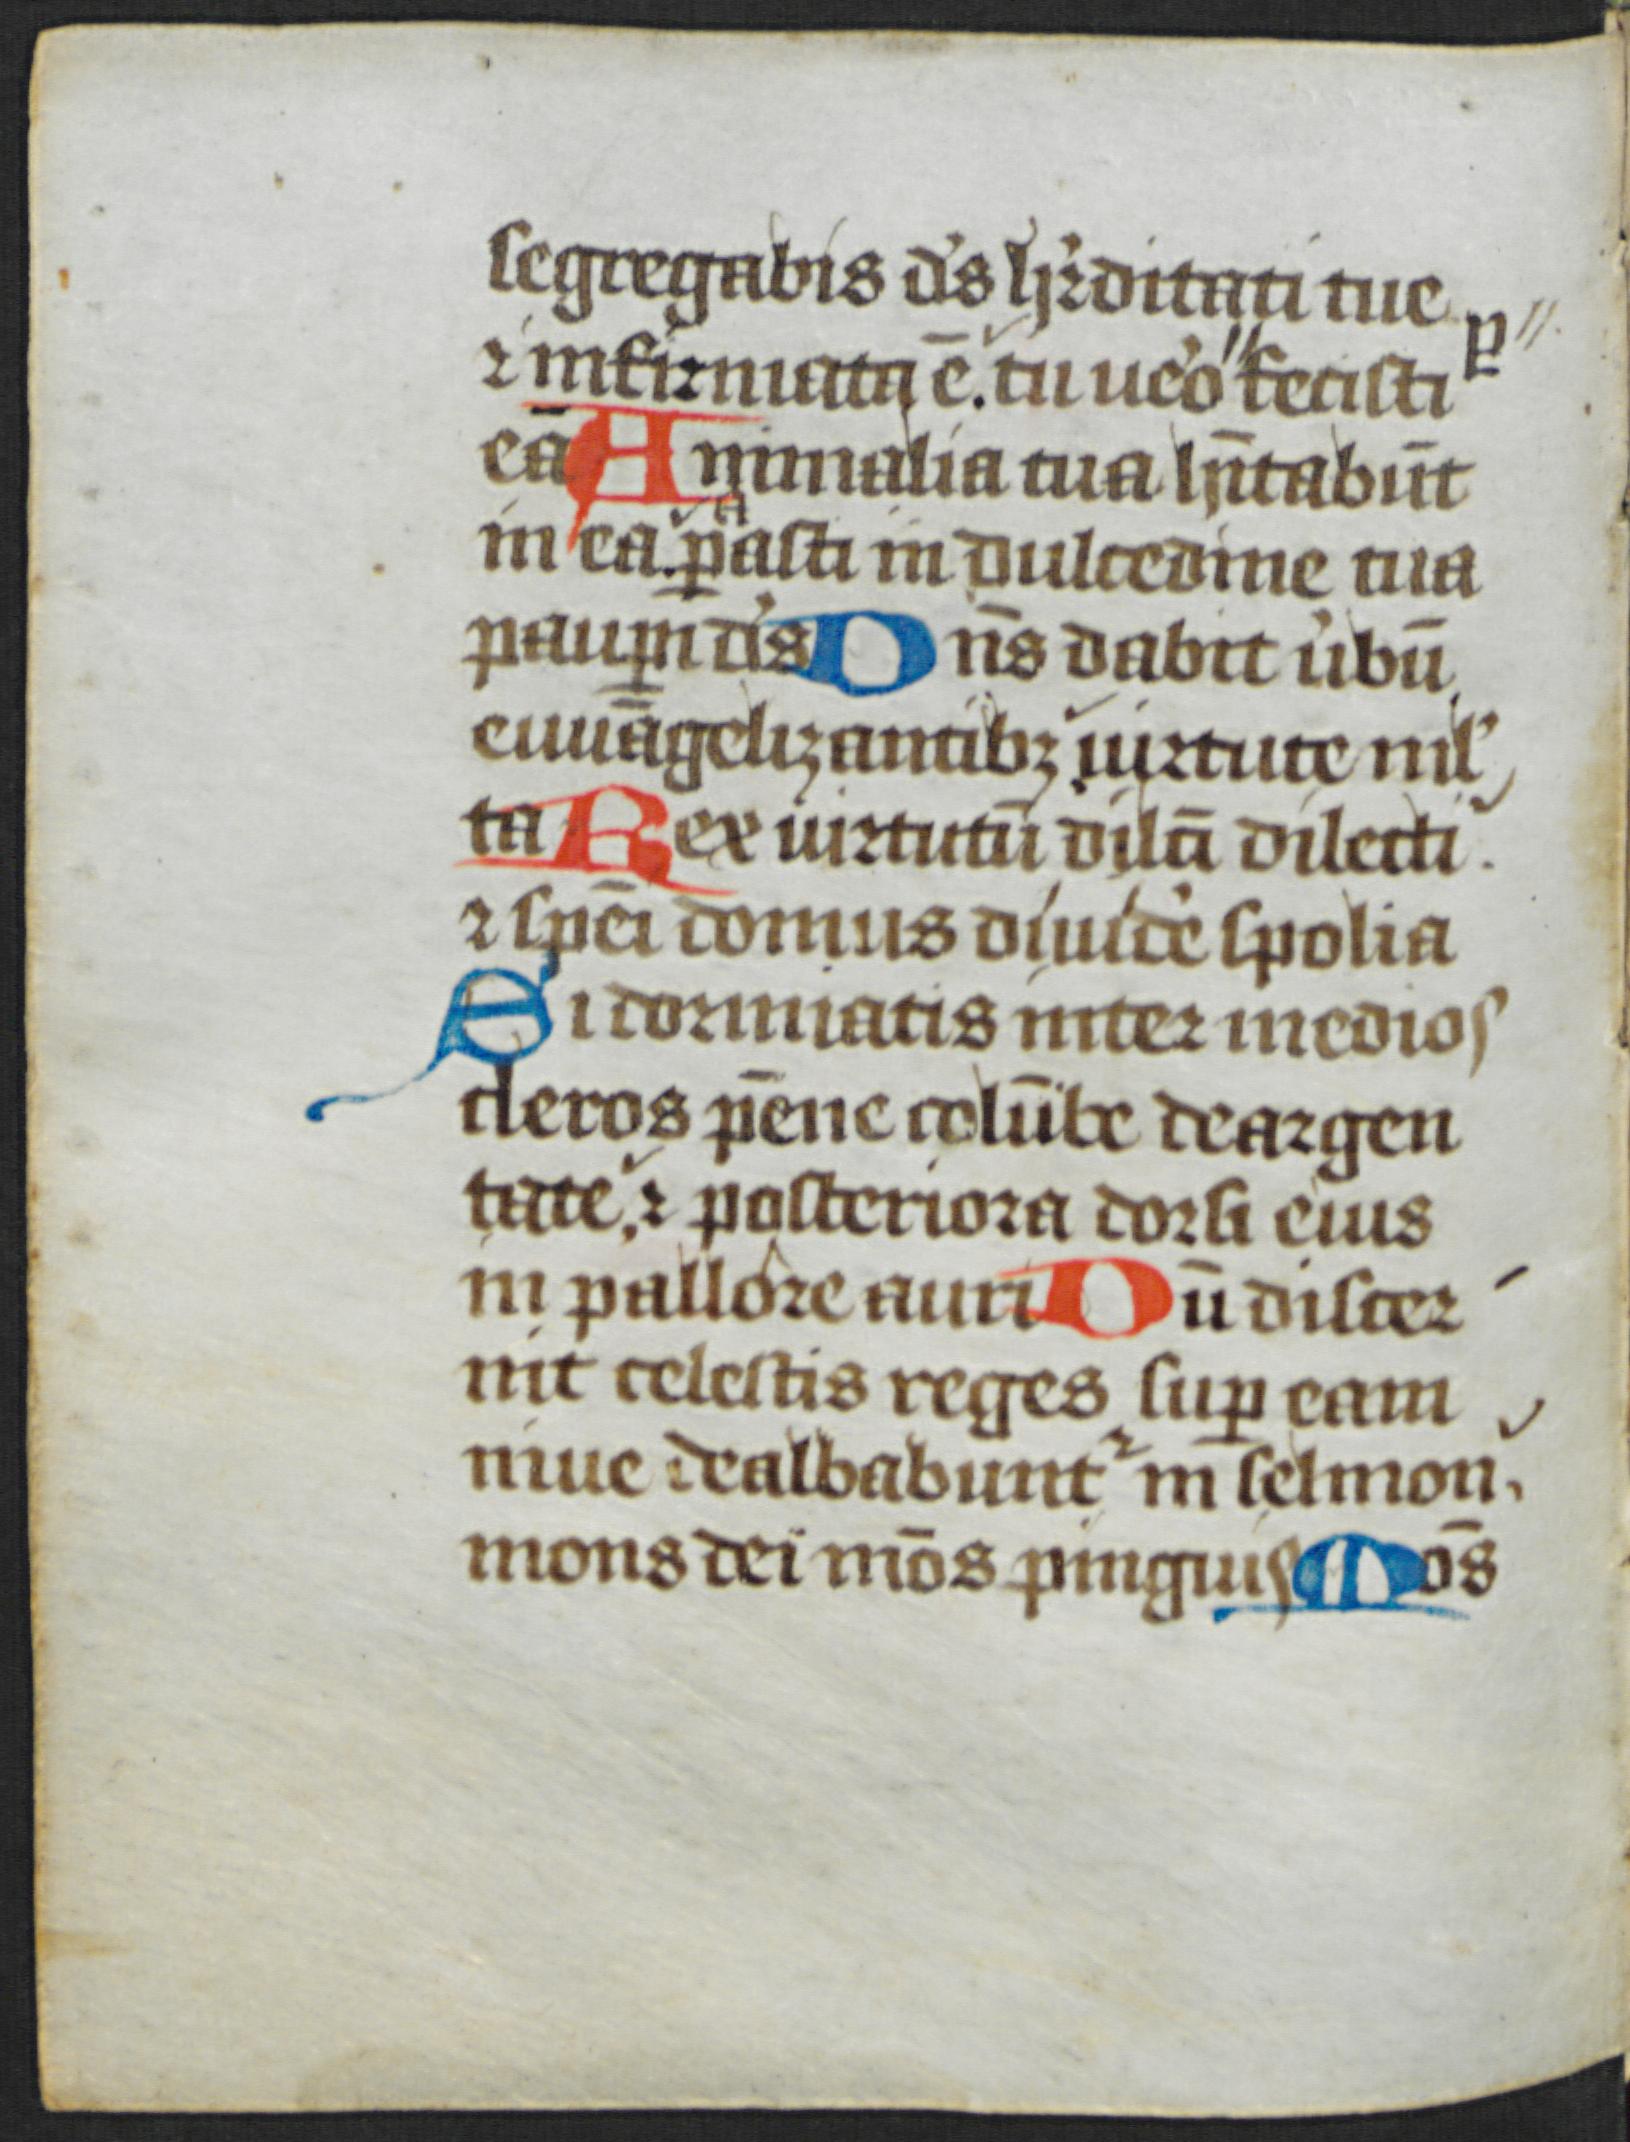 segregabis ds̾ hr̾ditati tue
⁊ infirmata ē. tu ue̾o fecisti p̱
eā Animalia tua hn̄tabūt
in ea. pᵃasti in dulcedine tua
paup̱i ds̾ Dn̄s dabit u̾bū
euuāgelizantibꝫ uirtute ml̾
ta Rex uirtutū dilc̄i dilecti.
⁊ sp̄ei domus diuide̾ spolia
Si dormiatis inter medios
cleros pēne colūbe deargen
tate. ⁊ posteriora dorsi eius
in pallore auri Dū discer
nit celestis reges suꝑ eam
niue dealbabunt᷑ in selmon.
mons dei mōs pinguis Mōs